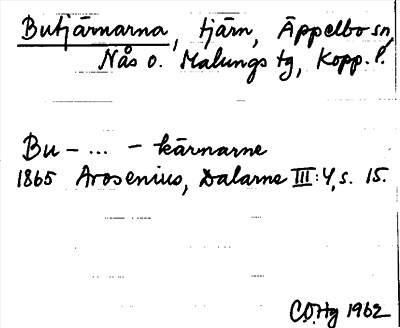 Butjärnarna, tjärn, Äppelbo sn,
Nås o. Malungs tg, Kopp. l.
Bu - ... - kärnarne
1865 Arosenius, Dalarne III:4, s. 15.
1962